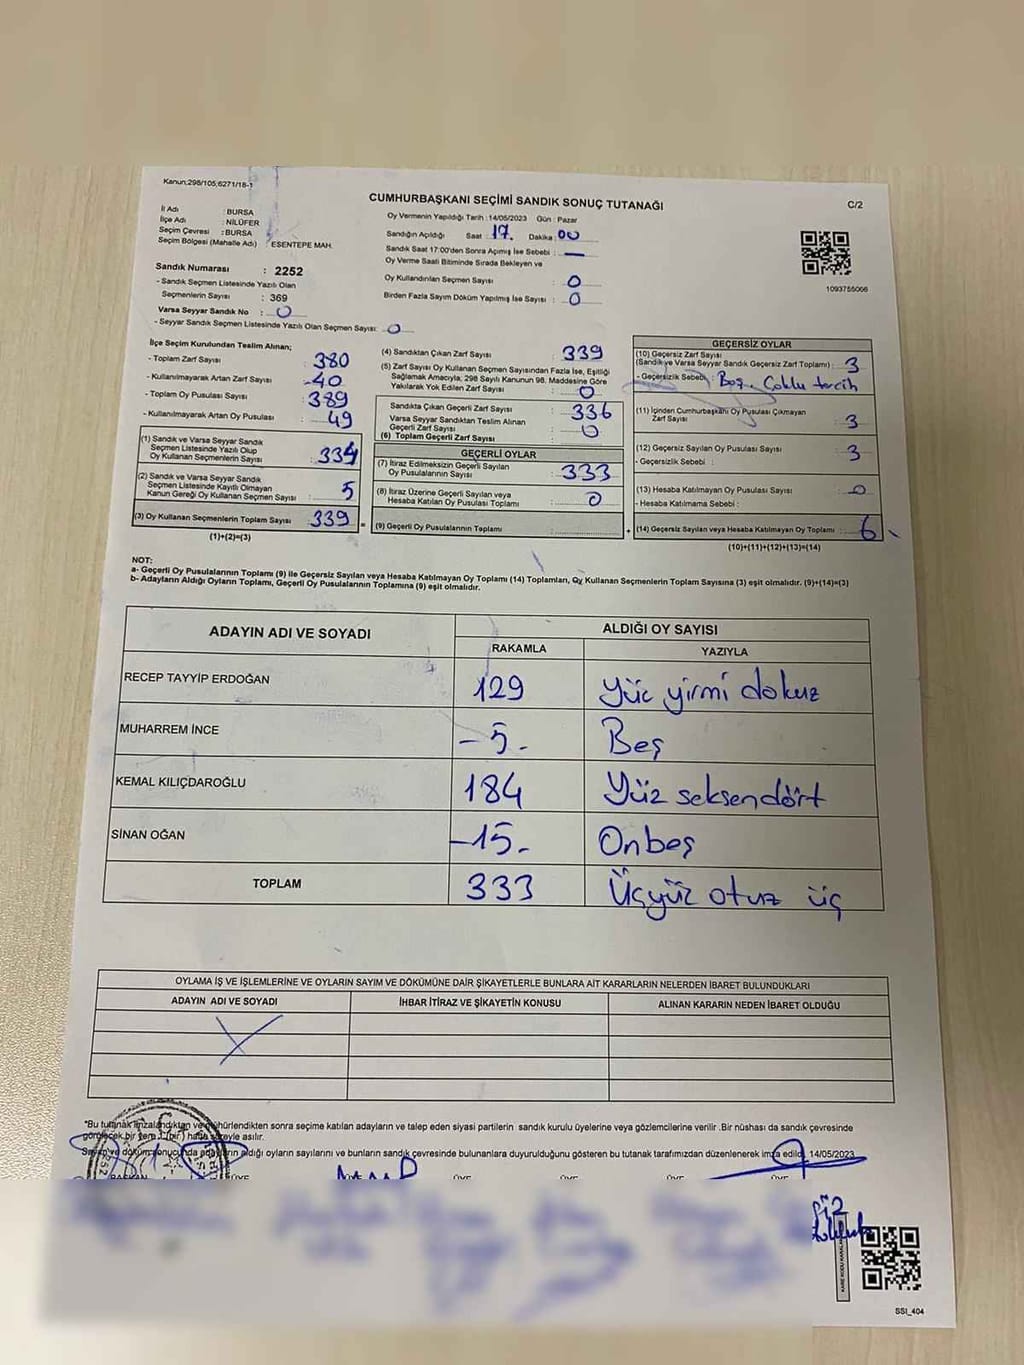 Kanun:298/105;6271/18-1
CUMHURBAŞKANI SEÇİMİ SANDIK SONUÇ TUTANAĞI
C/2
İl Adı : BURSA
İlçe Adı : NİLÜFER
Seçim Çevresi : BURSA
Seçim Bölgesi (Mahalle Adı) : ESENTEPE MAH.
Oy Vermenin Yapıldığı Tarih :14/05/2023 Gün : Pazar
Sandığın Açıldığı Saat : 17. Dakika : 00
Sandık Saat 17:00'den Sonra Açımış İse Sebebi : —
Oy Verme Saati Bitiminde Sırada Bekleyen ve
Oy Kullandırılan Seçmen Sayısı : 0
Birden Fazla Sayım Döküm Yapılmış İse Sayısı : 0
1093755066
Sandık Numarası : 2252
- Sandık Seçmen Listesinde Yazılı Olan
Seçmenlerin Sayısı : 369
Varsa Seyyar Sandık No : 0
- Seyyar Sandık Seçmen Listesinde Yazılı Olan Seçmen Sayısı: 0
İlçe Seçim Kurulundan Teslim Alınan;
- Toplam Zarf Sayısı : 380
- Kullanılmayarak Artan Zarf Sayısı : -40
- Toplam Oy Pusulası Sayısı : 389
- Kullanılmayarak Artan Oy Pusulası : 49
(1) Sandık ve Varsa Seyyar Sandık
Seçmen Listesinde Yazılı Olup
Oy Kullanan Seçmenlerin Sayısı : 334
(2) Sandık ve Varsa Seyyar Sandık
Seçmen Listesinde Kayıtlı Olmayan
Kanun Gereği Oy Kullanan Seçmen Sayısı : 5
(3) Oy Kullanan Seçmenlerin Toplam Sayısı : 339
(1)+(2)=(3)
=
(4) Sandıktan Çıkan Zarf Sayısı : 339
(5) Zarf Sayısı Oy Kullanan Seçmen Sayısından Fazla İse, Eşitliği
Sağlamak Amacıyla, 298 Sayılı Kanunun 98. Maddesine Göre
Yakılarak Yok Edilen Zarf Sayısı : 0
Sandıkta Çıkan Geçerli Zarf Sayısı : 336
Varsa Seyyar Sandıktan Teslim Alınan
Geçerli Zarf Sayısı : 0
(6) Toplam Geçerli Zarf Sayısı :
GEÇERLİ OYLAR
(7) İtiraz Edilmeksizin Geçerli Sayılan
Oy Pusulalarının Sayısı : 333
(8) İtiraz Üzerine Geçerli Sayılan veya
Hesaba Katılan Oy Pusulası Toplamı : 0
(9) Geçerli Oy Pusulalarının Toplamı :
+
GEÇERSİZ OYLAR
(10) Geçersiz Zarf Sayısı
(Sandık ve Varsa Seyyar Sandık Geçersiz Zarf Toplamı) : 3
- Geçersizlik Sebebi : Boş, Çoklu tercih
(11) İçinden Cumhurbaşkanı Oy Pusulası Çıkmayan
Zarf Sayısı : 3
(12) Geçersiz Sayılan Oy Pusulası Sayısı : 3
- Geçersizlik Sebebi :
(13) Hesaba Katılmayan Oy Pusulası Sayısı : 0
- Hesaba Katılmama Sebebi :
(14) Geçersiz Sayılan veya Hesaba Katılmayan Oy Toplamı : 6
(10)+(11)+(12)+(13)=(14)
NOT:
a- Geçerli Oy Pusulalarının Toplamı (9) ile Geçersiz Sayılan veya Hesaba Katılmayan Oy Toplamı (14) Toplamları, Oy Kullanan Seçmenlerin Toplam Sayısına (3) eşit olmalıdır. (9)+(14)=(3)
b- Adayların Aldığı Oyların Toplamı, Geçerli Oy Pusulalarının Toplamına (9) eşit olmalıdır.
ADAYIN ADI VE SOYADI
ALDIĞI OY SAYISI
RAKAMLA YAZIYLA
RECEP TAYYİP ERDOĞAN 129 Yüz yirmi dokuz
MUHARREM İNCE -5- Beş
KEMAL KILIÇDAROĞLU 184 Yüz seksendört
SİNAN OĞAN -15- Onbeş
TOPLAM 333 Üçyüz otuz üç
OYLAMA İŞ VE İŞLEMLERİNE VE OYLARIN SAYIM VE DÖKÜMÜNE DAİR ŞİKAYETLERLE BUNLARA AİT KARARLARIN NELERDEN İBARET BULUNDUKLARI
ADAYIN ADI VE SOYADI İHBAR İTİRAZ VE ŞİKAYETİN KONUSU ALINAN KARARIN NEDEN İBARET OLDUĞU
*Bu tutanak imzalandıktan ve mühürlendikten sonra seçime katılan adayların ve talep eden siyasi partilerin sandık kurulu üyelerine veya gözlemcilerine verilir .Bir nüshası da sandık çevresinde
görülecek bir yere 1 (bir) hafta süreyle asılır.
Sayım ve döküm sonucunda adayların aldığı oyların sayılarını ve bunların sandık çevresinde bulunanlara duyurulduğunu gösteren bu tutanak tarafımızdan düzenlenerek imza edildi. 14/05/2023
BAŞKAN ÜYE ÜYE ÜYE ÜYE ÜYE
SSI_404